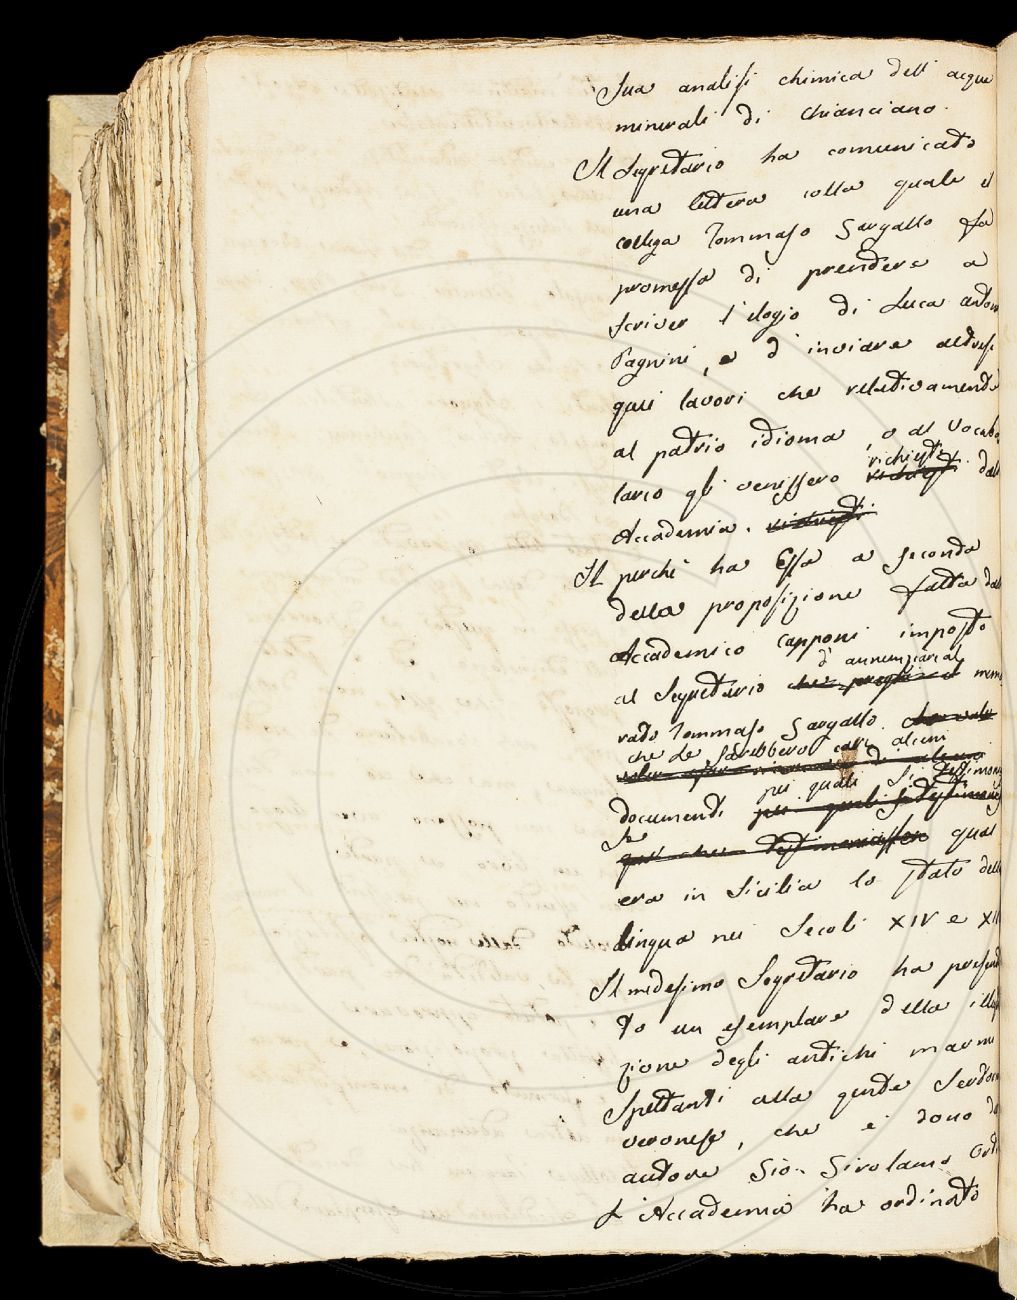 Sua analisi chimica dell' acque
minerali di Chianciano.
Il Segretario ha comunicato
una lettera colla quale il
collega Tommaso Gargallo fa
promessa di prendere a
scriver l'elogio di Luca Anton
Pagnini, e d'inviare altresì
quei lavori che relativamente
al patrio idioma, o al Vocabo
lario gli venissero
richiesti
dall
Accademia.
Il perchè ha Essa a seconda
della proposizione fatta dall
Accademico Capponi imposto
d' annunziare al
al Segretario
nomi
nato Tommaso Gargallo
che le sarebbero cari alcuni
documenti
pei quali si testimoni
qual
era in Sicilia lo stato della
lingua nei Secoli XIV e
Il medesimo Segretario ha presenta
to un esemplare della
zione degli antichi marmi
spettanti alla gente
veronese, che è dono
autore Gio. Girolamo Orti
L'Accademia ha ordinato